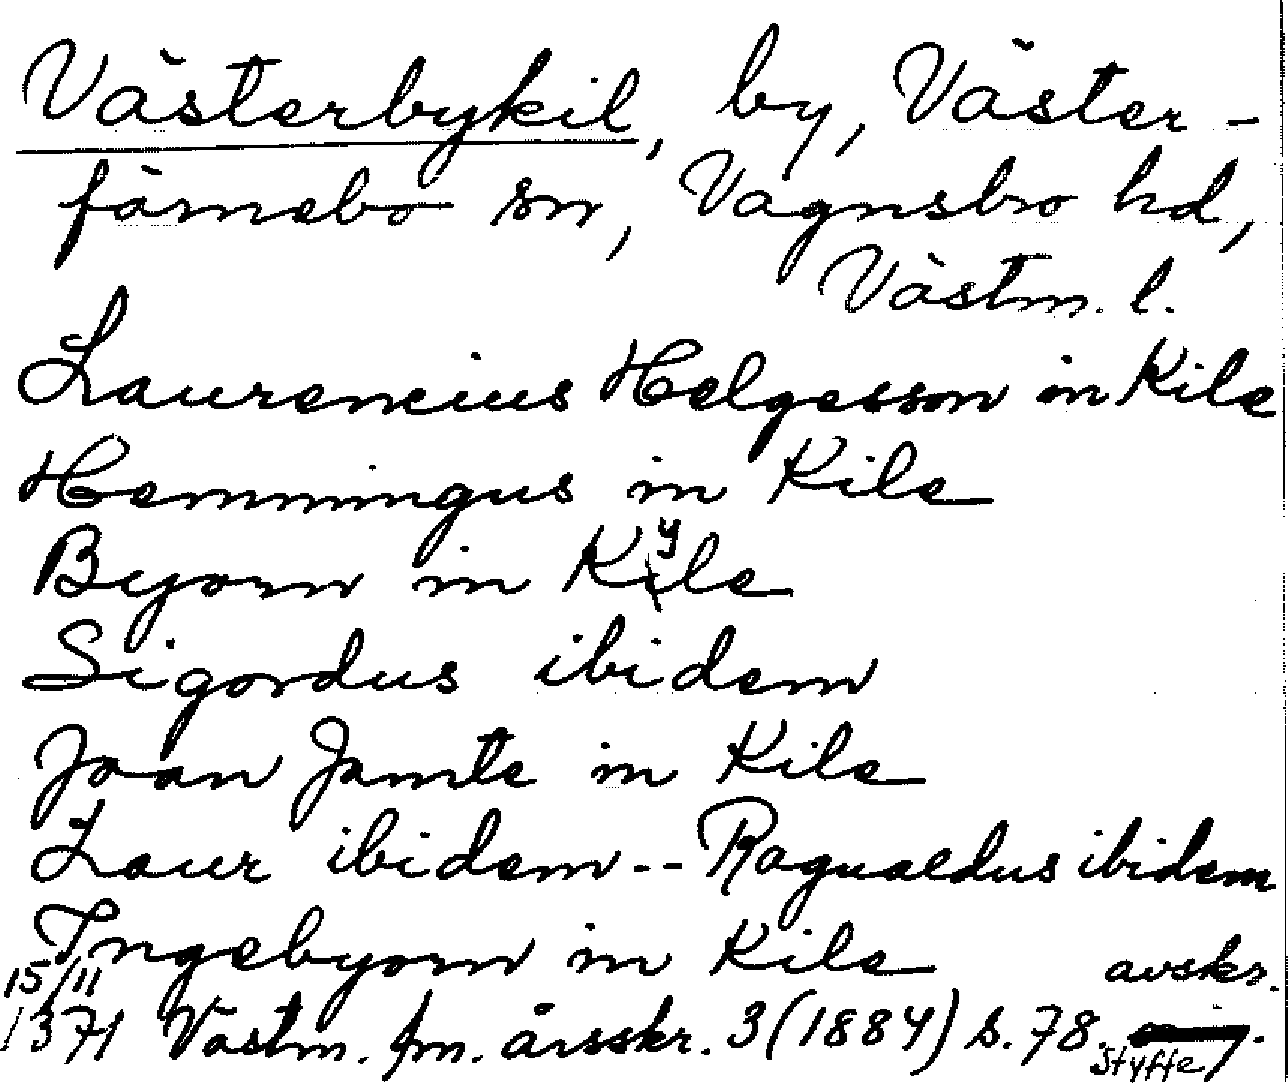 Västerbykil, by, Väster-
färnebo sn, Vagnsbro hd,
Västm. l.
Laurencius Helgesson in Kile
Hemmingus in Kile
Byorn in Kyle
Sigordus ibidem
Joan Jamte in Kile
Laur ibidem -- Ragualdus ibidem
Ingebyorn in Kile avskr.
15/11
1371 Västm. fm. årsskr. 3 (1884) s. 78.
Styffe